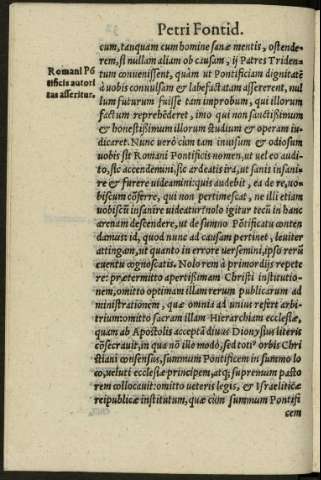 Petri Fontid.
cum, tanquam cum homine sanæ mentis, ostende-
rem, si nullam aliam ob causam, ij Patres Triden-
Romani Põ
tificis autori
tas asseritur.
tum convenissent, quàm ut Pontificiam dignitatē
à vobis convulsam & labefactatam assererent, nul
lum futurum fuisse tam improbum, qui illorum
factum reprehēderet, imò qui non sanctißimum
& honestißimum illorum studium & operam iu-
dicaret. Nunc verò cùm tam invisum & odiosum
vobis sit Romani Pontificis nomen, ut vel eo audi-
to, sic accendemini, sic ardeatis ira, ut sanis insani-
re & furere videamini: quis audebit, ea de re, vo-
biscum cõferre, qui non pertimescat, ne illi etiam
vobiscū insanire videatur? nolo igitur tecū in hanc
arenam descendere, ut de summo Põtificatu conten
damus: id, quod nunc ad causam pertinet, leviter
attingam, ut quanto in errore versemini, ipso rerū
eventu cognoscatis. Nolo rem à primordijs repete
re: prætermitto apertißimam Christi institutio-
nem, omitto optimam illam rerum publicarum ad
ministrationem, quæ omnia ad unius refert arbi-
trium: omitto sacram illam Hierarchiam ecclesiæ,
quam ab Apostolis acceptā divus Dionysius literis
cõsecravit, in qua nõ illo modò, sed totiꝰ orbis Chri
stiani consensus, summum Pontificem in summo lo
co, veluti ecclesiæ principem, atq; supremum pasto
rem collocavit: omitto veteris legis, & Israeliticæ
reipublicæ institutum, quæ cùm summum Pontifi
cem